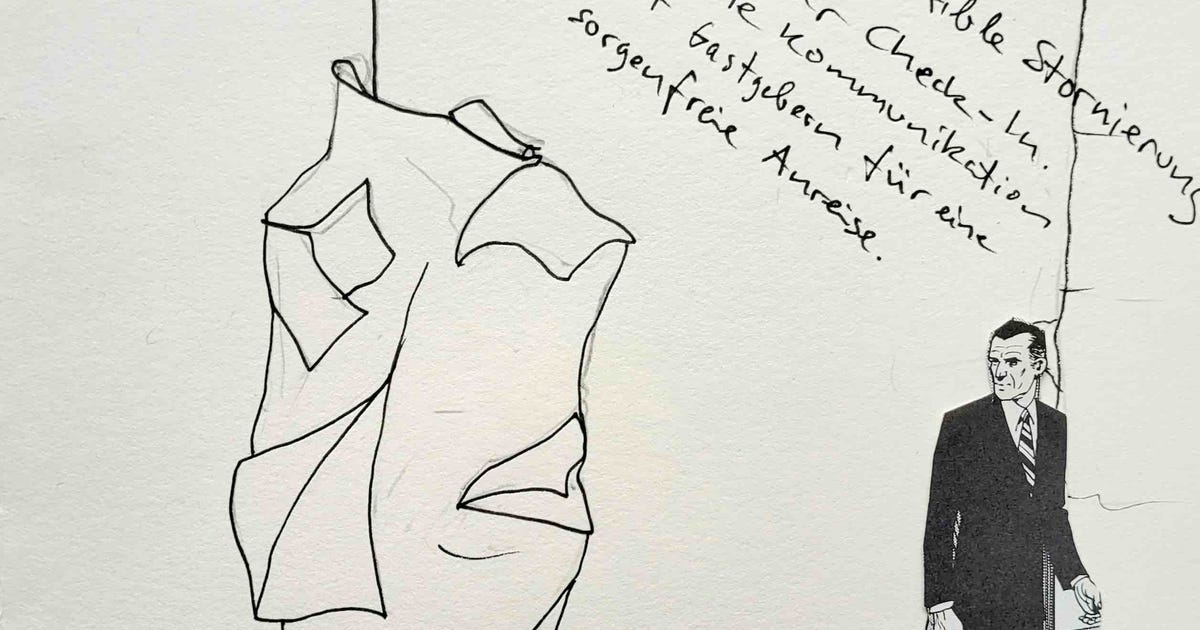 Stornierung
Check-In.
Kommunikation
Gastgebern für eine
sorgenfreie Anreise.